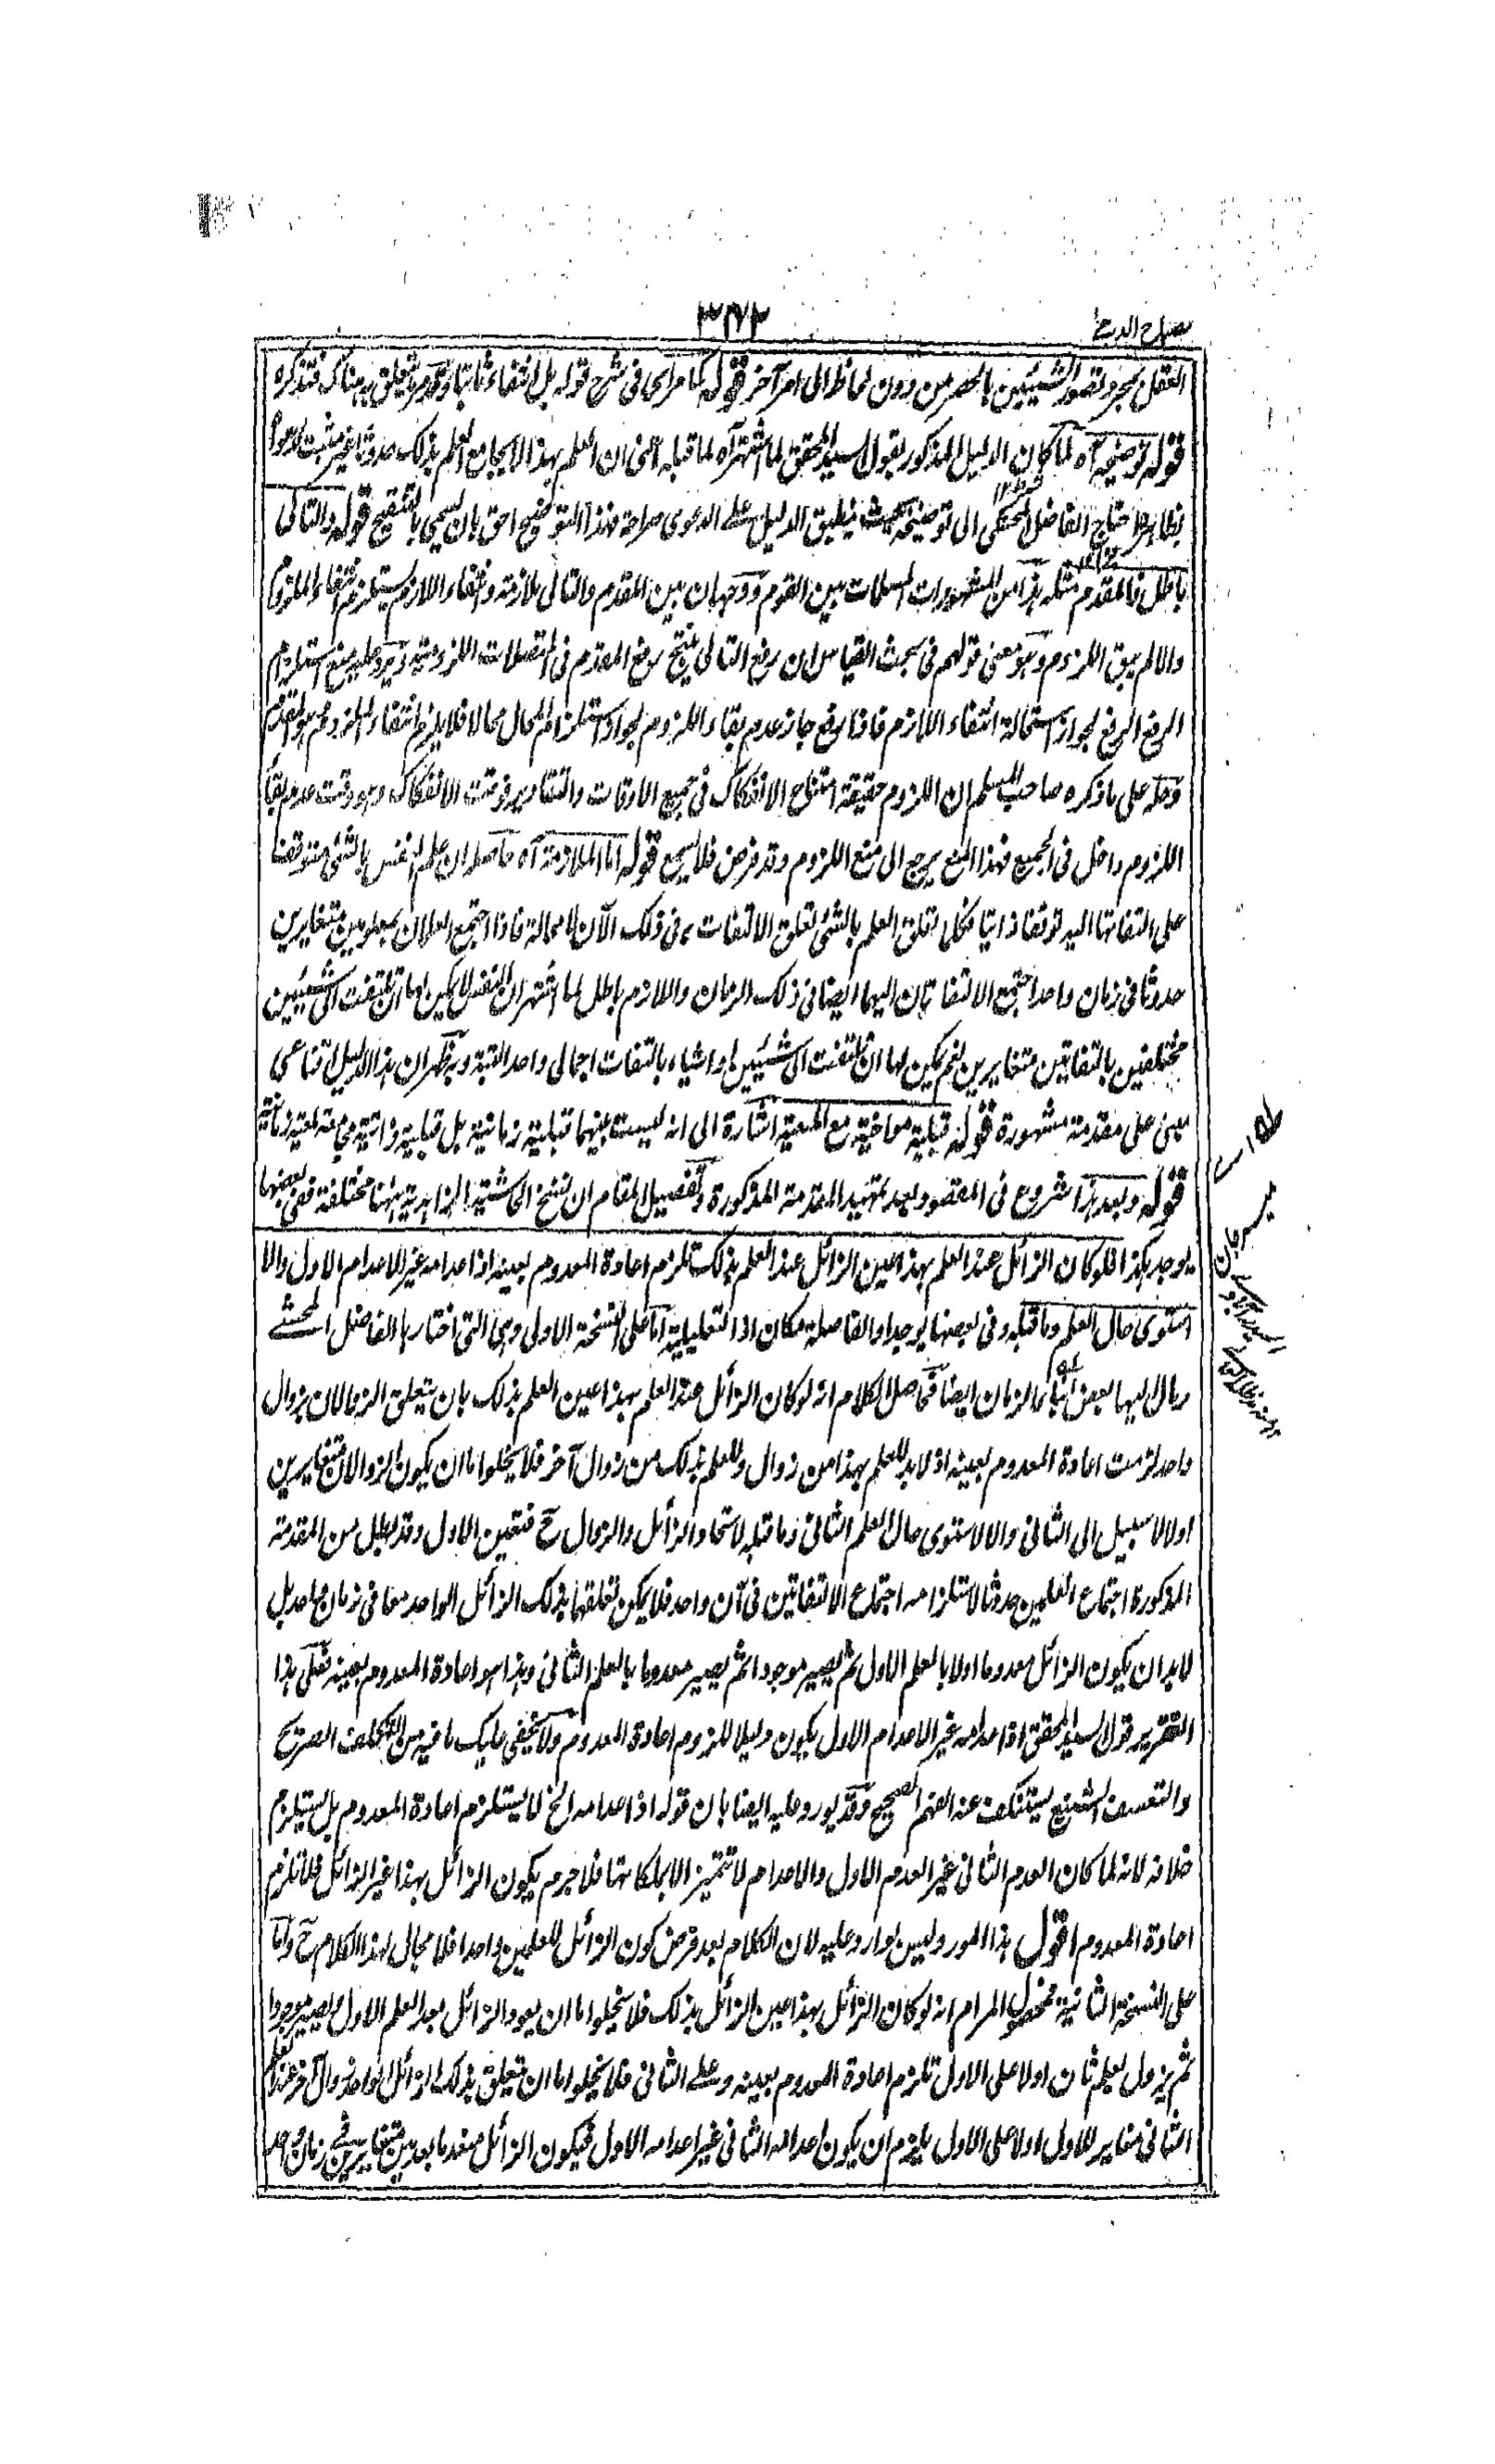 مصباح الدجى
العقل بمجرد تصور الشيئين بالحصر من دون لحاظ الى امر آخر قوله كما مر اى فى شرح قوله بل انتفاء ثابتا وقد مر ما يتعلق به هناك فتذكره
قوله توضيحه آه لما كان الدليل المذكور بقول السيد المحقق لما اشتهر آه لما قبله اعنى ان العلم بهذا الايجامع العلم بذلك حدوثا غير مثبت للدعوى
بظاهره احتاج الفاضل المحشى الى توضيحه بحيث ينطبق الدليل على الدعوى صراحة فهذا التوضيح احق بان يسمى بالتنقيح قوله والتالى
باطل فالمقدم مثله هذا من المشهورات المسلمات بين القوم ووجهه ان بين المقدم والتالى ملازمة وانتفاء اللازم يستلزم انتفاء الملزوم
والا لم يبق اللزوم وهو معنى قولهم فى بحث القياس ان رفع التالى ينتج رفع المقدم فى المتصلات اللزومية ويرد عليه منع استلزام
الرفع الرفع لجواز استحالة انتفاء اللازم فاذا رفع جاز عدم بقاء اللزوم لجواز استلزام المحال محالا فلا يلزم انتفاء الملزوم وهو المقدم
وحله على ما ذكره صاحب السلم ان اللزوم حقيقة امتناع الانفكاك فى جميع الاوقات والتقادير فوقت الانفكاك وهو وقت عدم بقاء
اللزوم داخل فى الجميع فهذا المنع يرجع الى منع اللزوم وقد فرض فلا يسمع قوله اما الملازمة آه حاصله ان علم النفس بالشئ متوقف
على التفاتها اليه توقفا ذاتيا فكلما تعلق العلم بالشئ تعلق الالتفات به فى ذلك الآن لا محالة فاذا اجتمع العلمان بمعلومين متغايرين
حدوثا فى زمان واحد اجتمع الالتفاتان اليهما ايضا فى ذلك الزمان واللازم باطل لما اشتهر ان النفس لا يمكن لها ان تلتفت الى شيئين
مختلفين بالتفاتين متغايرين نعم يمكن لها ان تلتفت الى شيئين او اشياء بالتفات اجمالى واحد البتة وبه ظهر ان هذا الدليل اقناعى
مبنى على مقدمة مشهورة قوله قبلية مواخية مع المعية اشارة الى انه ليست بينهما قبلية زمانية بل قبلية ذاتية مجامعة لمعية زمانية
قوله وبعد هذا شروع فى المقصود بعد تمهيد المقدمة المذكورة وتفصيل المقام ان نسخ الحاشية الزاهدية ههنا مختلفة ففى بعضها
يوجد هكذا فلو كان الزائل عند العلم بهذا عين الزائل عند العلم بذلك تلزم اعادة المعدوم بعينه اذ اعدامه غير الاعدام الاول والا
استوى حال العلم وما قبله وفى بعضها يوجد او الفاصلة مكان اذ التعليلية اما على النسخة الاولى وهى التى اختارها الفاضل المحشى
ومال اليها بعض ابناء الزمان ايضا فحاصل الكلام انه لو كان الزائل عند العلم بهذا عين العلم بذلك بان يتعلق الزوالان بزوال
واحد لزمت اعادة المعدوم بعينه اذ لا بد للعلم بهذا من زوال وللعلم بذلك من زوال آخر فلا يخلو اما ان يكون الزوالان متغايرين
اولا لا سبيل الى الثانى والا لاستوى حال العلم الثانى وما قبله لاتحاد الزائل والزوال ح فتعين الاول وقد بطل من المقدمة
المذكورة اجتماع العلمين حدوثا لاستلزامه اجتماع الالتفاتين فى آن واحد فلا يمكن تعلقهما بذلك الزائل الواحد معا فى زمان واحد بل
لا بد ان يكون الزائل معدوما اولا بالعلم الاول ثم يصير موجودا ثم يصير معدوما بالعلم الثانى وهذا هو اعادة المعدوم بعينه فعلى هذا
التقرير قول السيد المحقق اذ اعدامه غير الاعدام الاول يكون دليلا للزوم اعادة المعدوم ولا يخفى عليك ما فيه من التكلف الصريح
والتعسف الشنيع يستنكف عنه الفهم الصحيح وقد يورد عليه ايضا بان قوله اذ اعدامه الخ لا يستلزم اعادة المعدوم بل يستلزم
خلافه لانه لما كان العدم الثانى غير العدم الاول والاعدام لا تتميز الا بملكاتها فلا جرم يكون الزائل بهذا غير الزائل فلا تلزم
اعادة المعدوم اقول هذا المورد ليس بوارد عليه لان الكلام بعد فرض كون الزائل للعلمين واحدا فلا مجال لهذا الكلام ح واما
على النسخة الثانية فمحصول المرام انه لو كان الزائل بهذا عين الزائل بذلك فلا يخلو اما ان يعود الزائل بعد العلم الاول ويصير موجودا
ثم يزول بعلم ثان اولا على الاول تلزم اعادة المعدوم بعينه وعلى الثانى فلا يخلو اما ان يتعلق بذلك الزائل الواحد زوال آخر عند العلم
الثانى مغاير للاول اولا على الاول يلزم ان يكون اعدامه الثانى غير اعدامه الاول فيكون الزائل منعدما بعدمين متغايرين فى زمان واحد